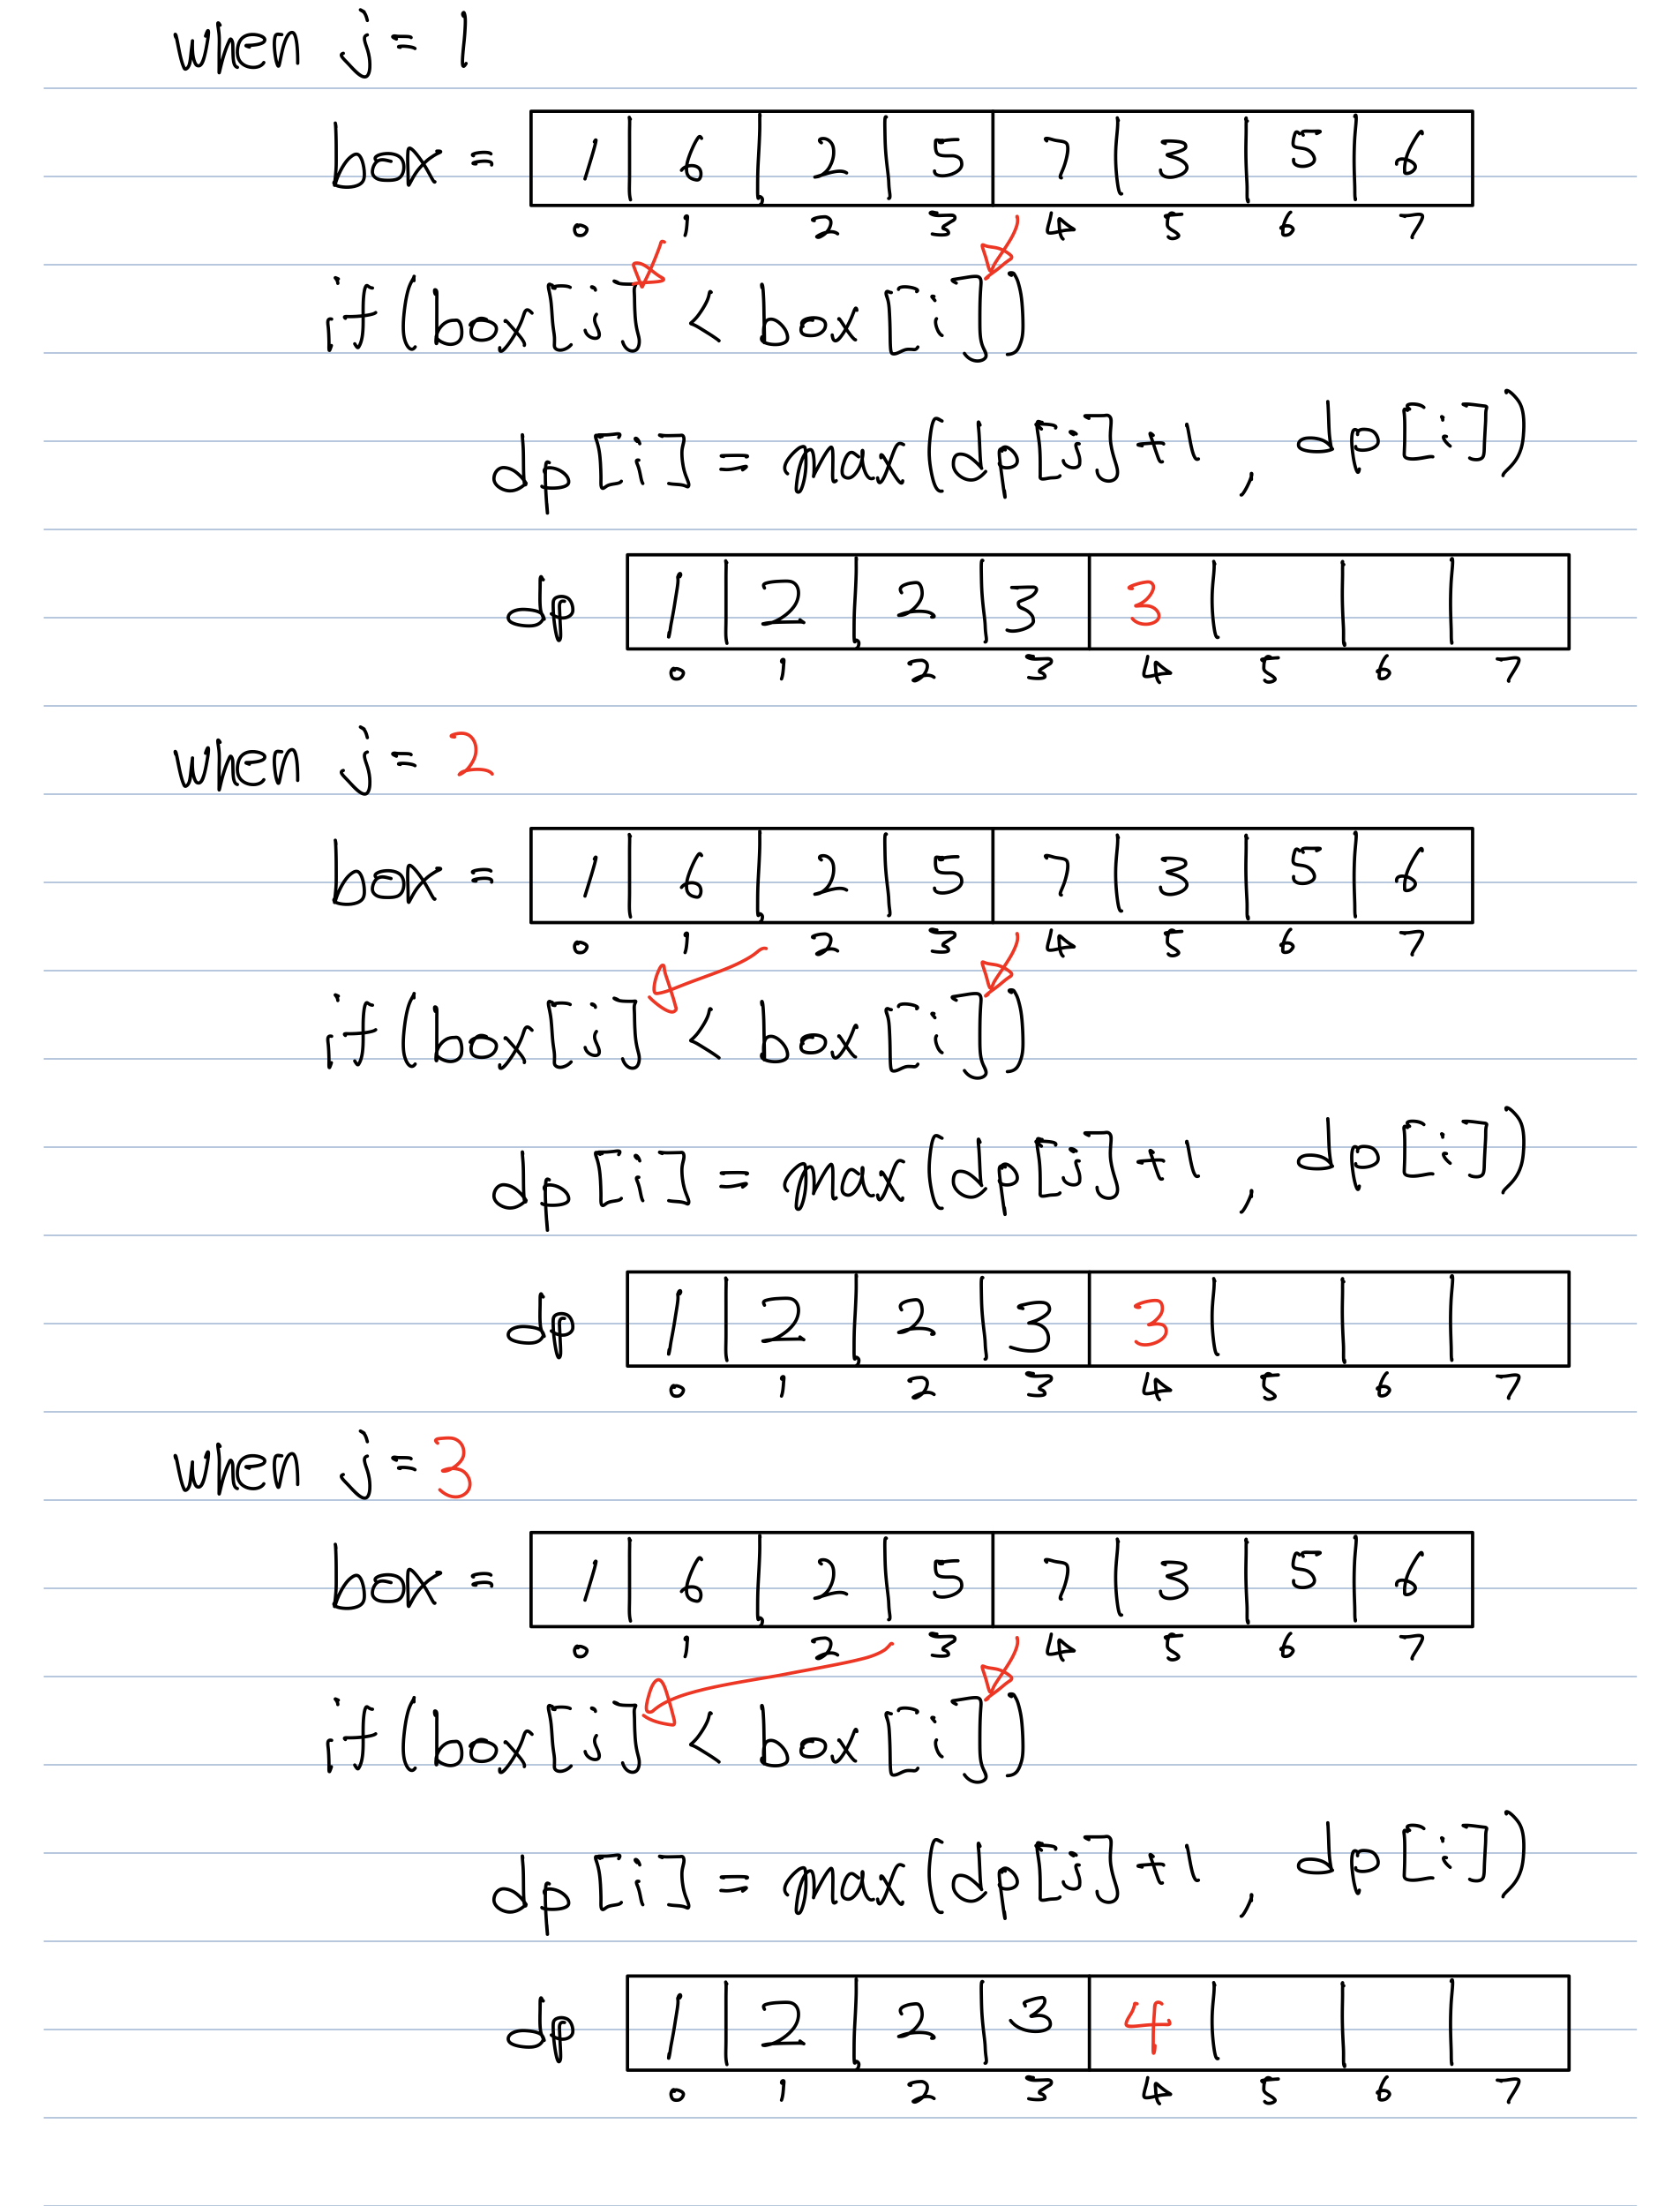 when j = 1
box = 1 6 2 5 7 3 5 6
0 1 2 3 4 5 6 7
if (box[j] < box[i])
dp[i] = max(dp[j]+1, dp[i])
dp 1 2 2 3 3
0 1 2 3 4 5 6 7
when j = 2
box = 1 6 2 5 7 3 5 6
0 1 2 3 4 5 6 7
if (box[j] < box[i])
dp[i] = max(dp[j]+1, dp[i])
dp 1 2 2 3 3
0 1 2 3 4 5 6 7
when j = 3
box = 1 6 2 5 7 3 5 6
0 1 2 3 4 5 6 7
if (box[j] < box[i])
dp[i] = max(dp[j]+1, dp[i])
dp 1 2 2 3 4
0 1 2 3 4 5 6 7